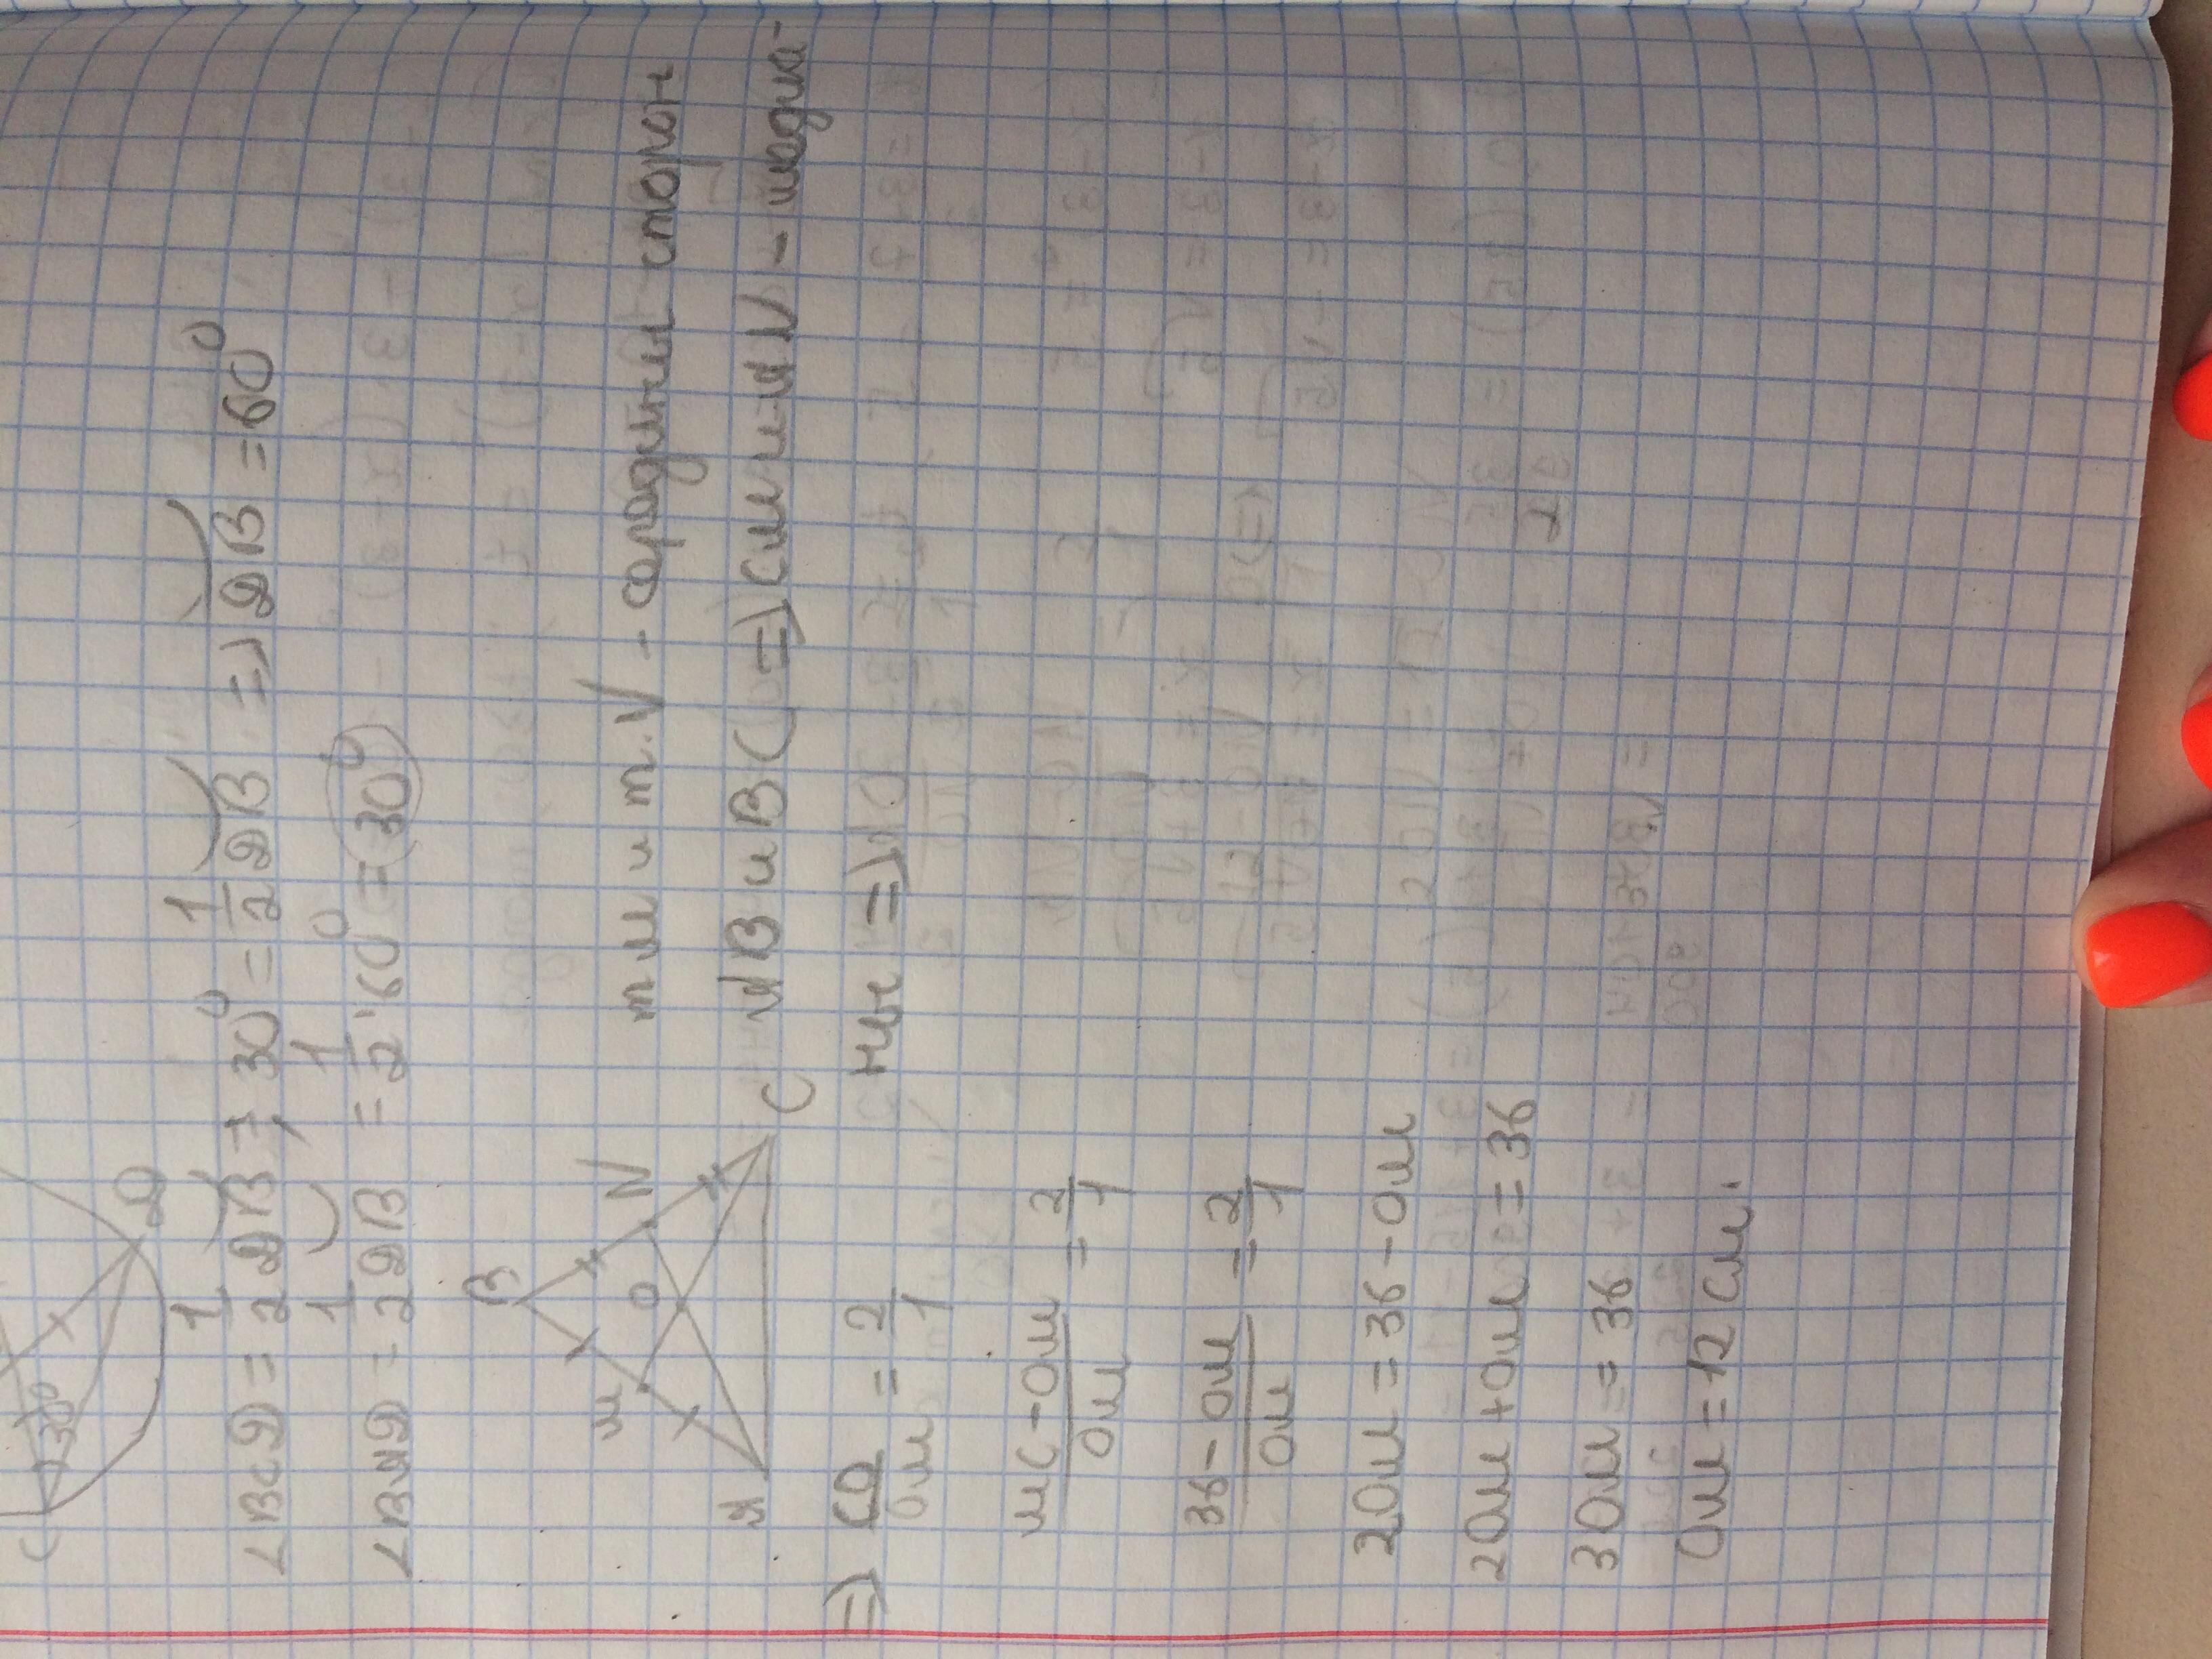 C
30°
D
∠BCD = 1/2 DB ⇒ 30° = 1/2 DB ⇒ DB = 60°
∠BAD = 1/2 DB = 1/2 · 60° = 30°
B
M
N
O
A
C
т М и т. N - середины сторон
AB и BC ⇒ CM и AN - медиа-
ны ⇒
⇒ CO/OM = 2/1
MC - OM/OM = 2/1
36 - OM/OM = 2/1
2OM = 36 - OM
2OM + OM = 36
3OM = 36
OM = 12 см.